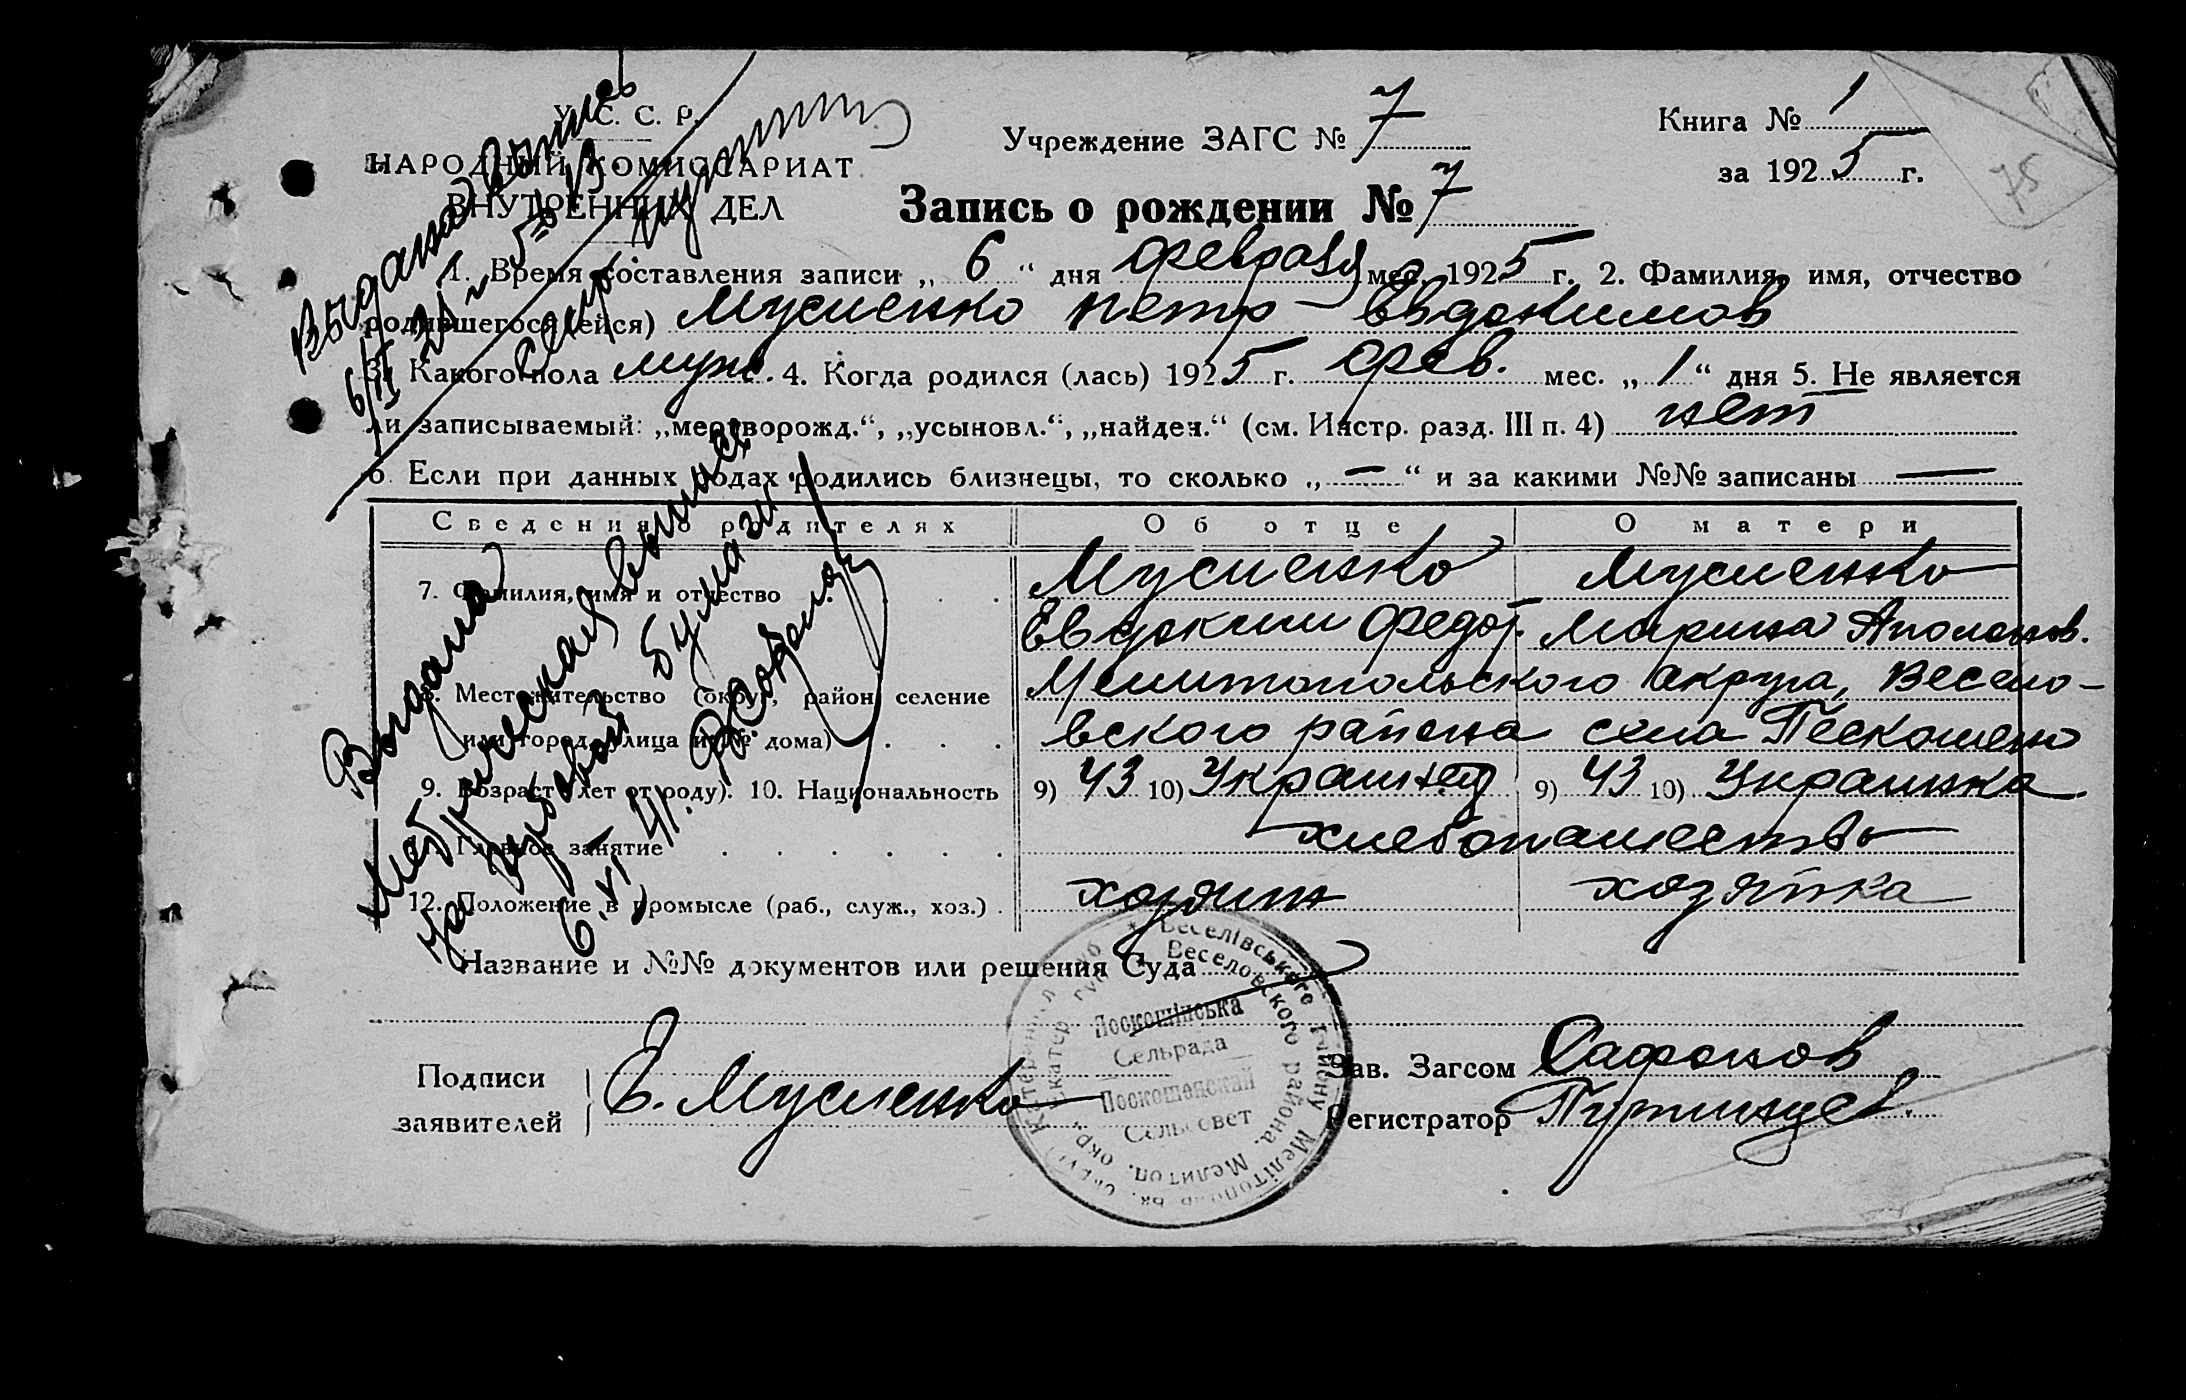 У. С. С. Р.
НАРОДНЫЙ КОМИССАРИАТ
ВНУТРЕННИХ ДЕЛ
Учреждение ЗАГС № 7
Книга № 1
за 1925 г.
75
Запись о рождении № 7
1. Время составления записи „ 6 “ дня февраля мес. 1925 г. 2. Фамилия, имя, отчество
родившегося (ейся) Мусиенко Петр Евдокимов
3. Какого пола муж. 4. Когда родился (лась) 1925 г. фев. мес. „ 1 “ дня 5. Не является
ли записываемый: „мертворожд.“, „усыновл.“, „найден.“ (см. Инстр. разд. III п. 4) нет
6. Если при данных родах родились близнецы, то сколько „ — “ и за какими №№ записаны —
Сведения о родителях Об отце О матери
7. Фамилия, имя и отчество Мусиенко Мусиенко
Евдоким Федот. Марина Аполонов.
8. Местожительство (округ, район, селение Мелитопольского округа, Весело-
или город, улица и № дома) вского района села
9. Возраст (лет от роду). 10. Национальность 9) 43 10) Украинец 9) 43 10) Украинка
11. Главное занятие хлебопашество
12. Положение в промысле (раб., служ., хоз.) хозяин хозяйка
Название и №№ документов или решения Суда
Подписи
заявителей Е. Мусиенко
Зав. Загсом Сафонов
Регистратор
Веселівського району Мелітоп
Веселовского района, Мелитоп. окр.
Сельрада
Сельсовет
Выдана выпись
Выдана
Метрическая выпись
на гербовой бумаге
6.VI 41.